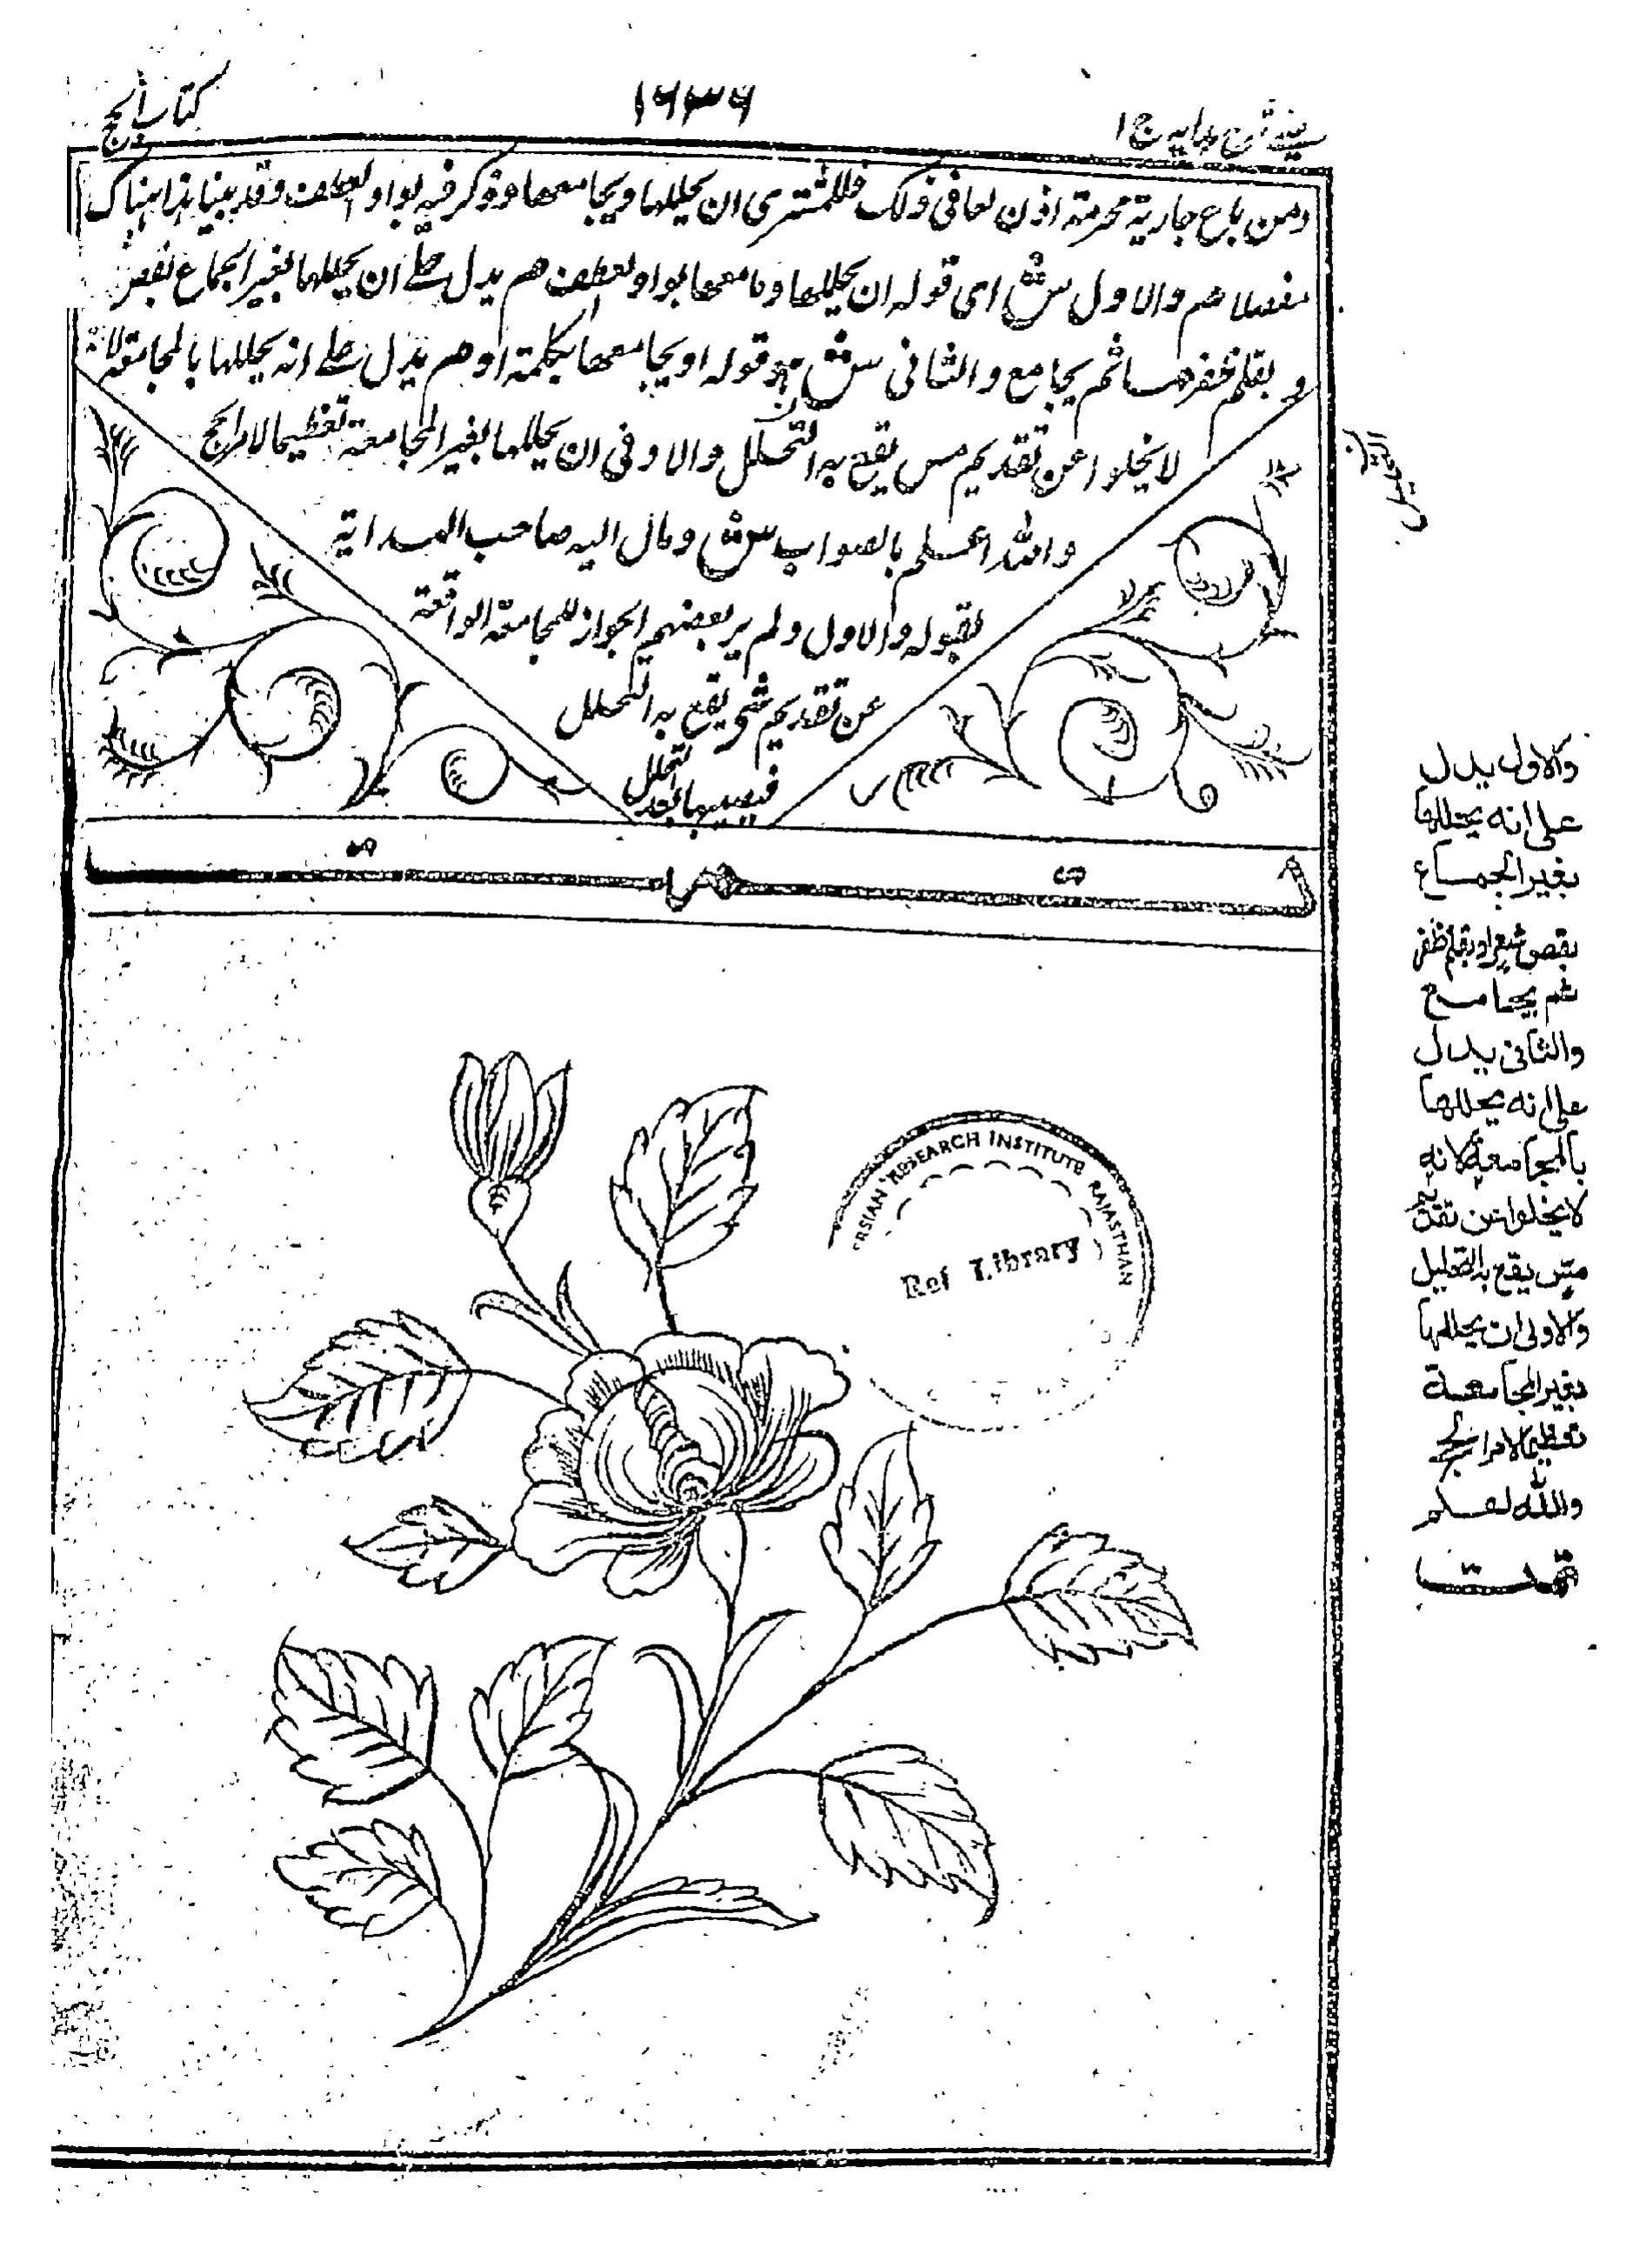 كتاب الحج
١٦٣٦
عينى شرح هدايه ج ١
ومن باع جارية محرمة اذن لها فى ذلك فللمشترى ان يحللها ويجامعها وذكر فيه بواو لعطف وقد بينا هذا هناك
مفصلا هم والاول ش اى قوله ان يحللها و جامعها بواو لعطف هم يدل على ان يحللها بغير الجماع بقص
و بقلم ظفر هما ثم يجامع والثانى ش هو قوله او يجامعها بكلمة او هم يدل على انه يحللها بالمجامعة لانه
لا يخلوا عن تقديم مس يقع به التحلل والاوفى ان يحللها بغير المجامعة تعظيما لامر الحج
والله اعلم بالصواب ش ومال اليه صاحب الهداية
بقوله والاول ولم ير بعضهم الجواز للمجامعة الواقعة
عن تقديم شى يقع به التحلل
فيصيبها بعد التحلل
والاول يدل
على انه يحللها
بغير الجماع
بقص شعر او بقلم ظفر
ثم يجامع
والثانى يدل
على انه يحللها
بالمجامعة لانه
لا يخلوا عن تقديم
مس يقع به التحليل
والاولى ان يحللها
بغير المجامعة
تعظيما لامر الحج
والله اعلم
تمت
PERSIAN RESEARCH INSTITUTE RAJASTHAN
Ref Library